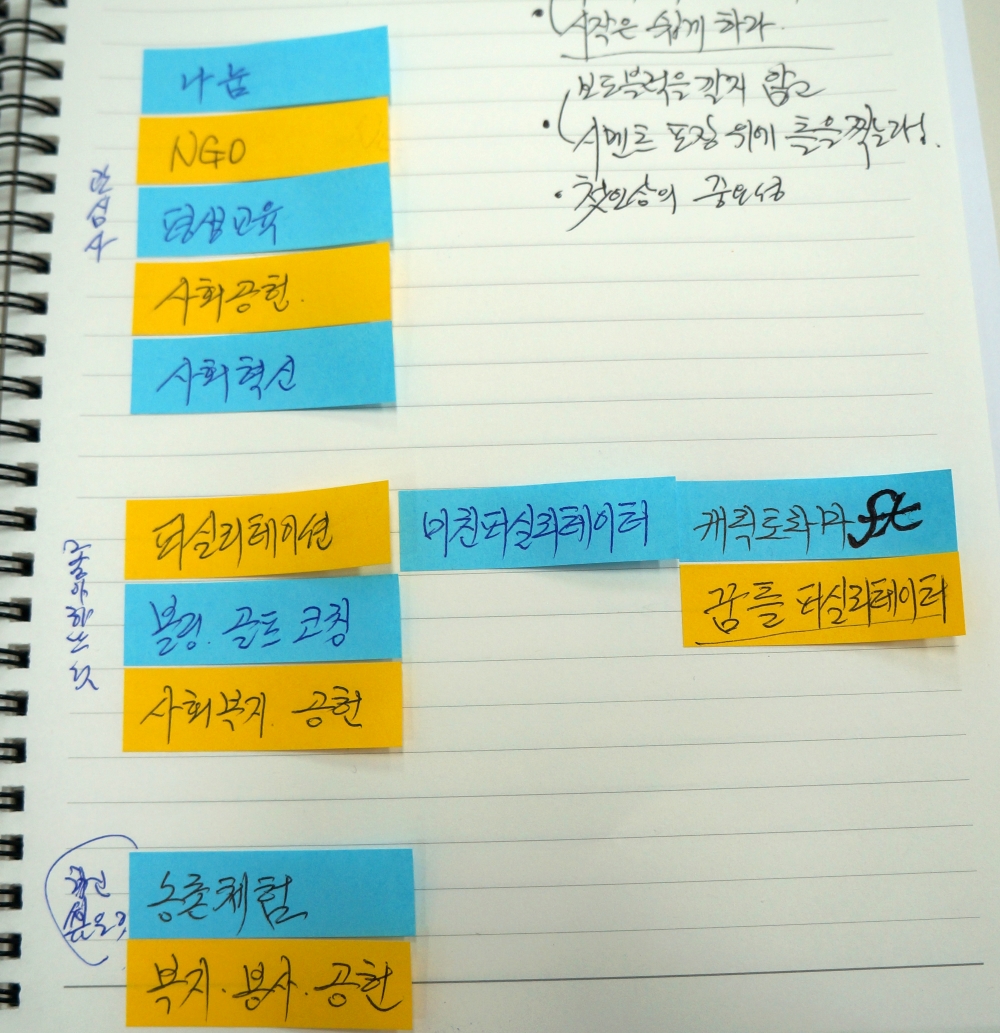 시작은 쉽게 하라
보도블럭을 깔지 않고
시멘트 포장 위에 틀을 찍는다.
첫인상의 중요성
관심사
나눔
NGO
평생교육
사회공헌.
사회혁신
좋아하는 것
퍼실리테이션
볼링. 골프 코칭
사회복지 공헌
미친퍼실리테이터
캐릭토화가 ft
꿈틀 퍼실리테이터
싶은것
농촌체험
복지.봉사.공헌